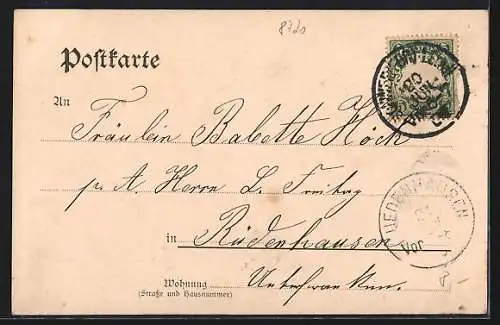 87do
Postkarte
An
Fräulein Babette Höck
p. A. Herrn L. Freitag
in Rüdenhausen
Wohnung
(Straße und Hausnummer)
Unterfranken.
20
Vor
8,-